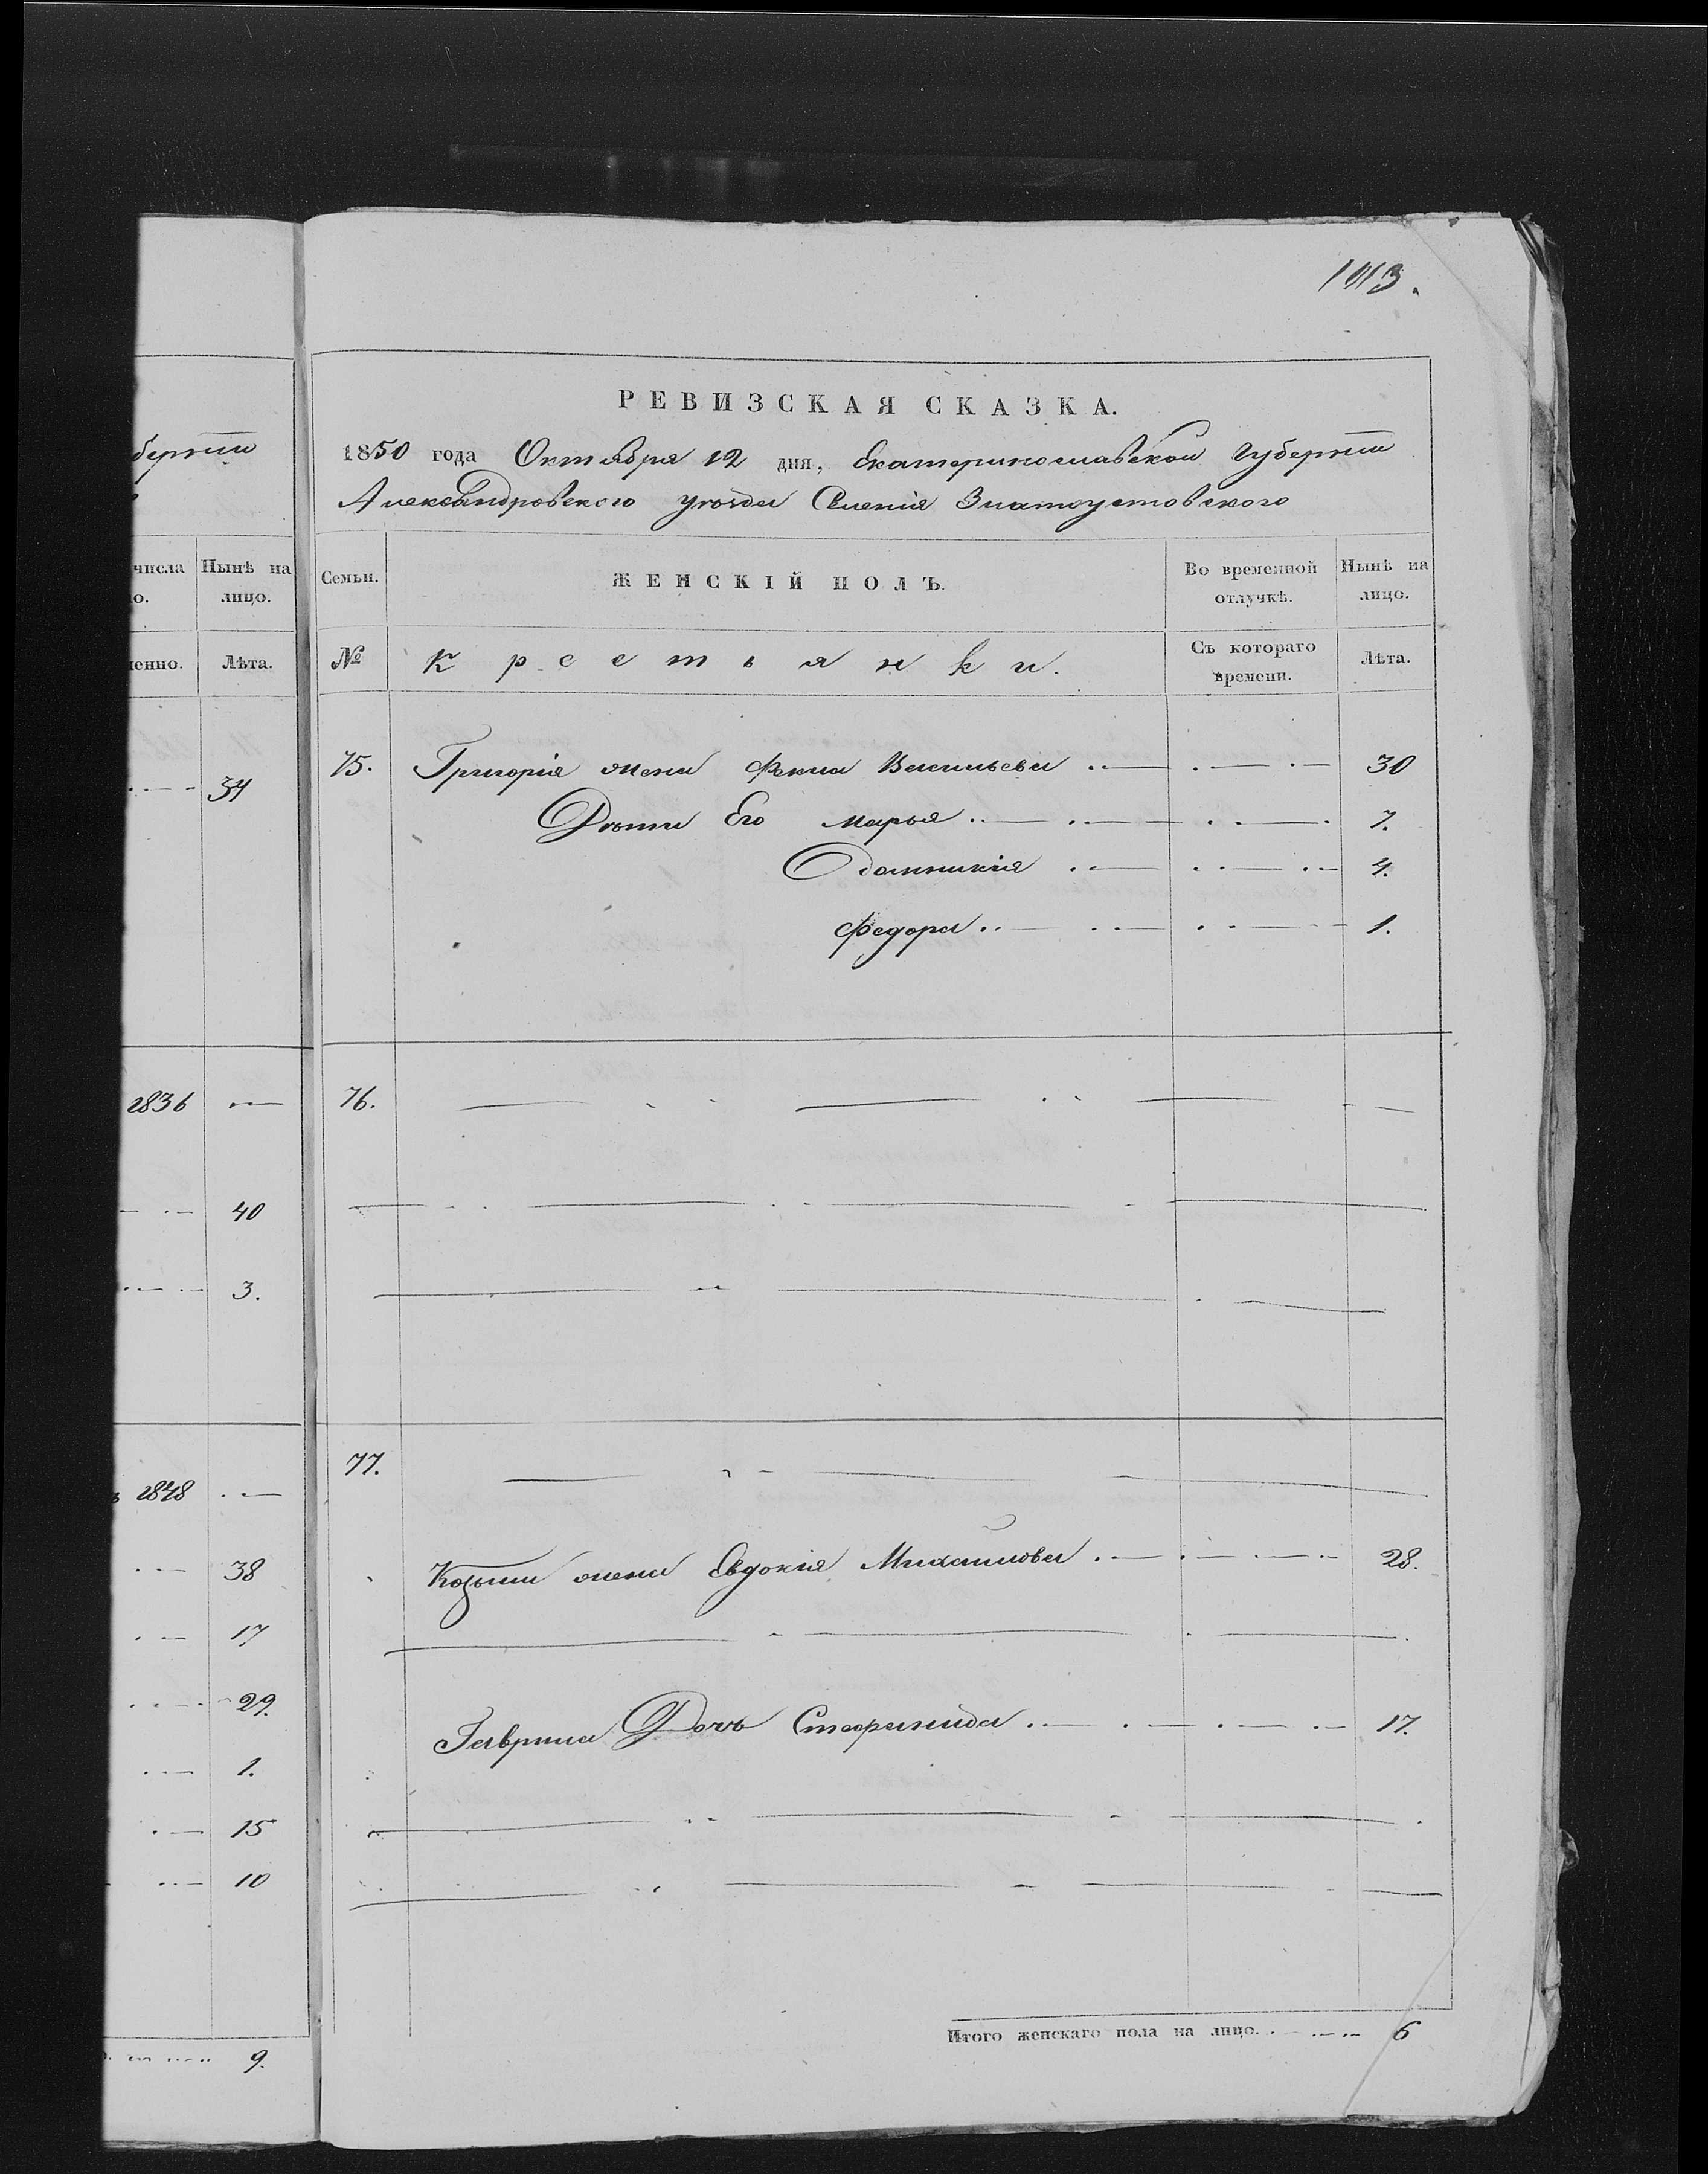 1113.
бернiи
РЕВИЗСКАЯ СКАЗКА.
1850 года Октября 12 дня, Екатеринославской Губернiи
Александровского уѣзда Селенiя Златоустовского
числа
Нынѣ на лицо.
Семьи.
ЖЕНСКІЙ ПОЛЪ.
Во временной отлучкѣ.
Нынѣ на лицо.
Лѣта.
№
Крестьянки.
Съ котораго времени.
Лѣта.
75. Григорiя жена Фекла Васильева 30
Дѣти Его Марья 7.
Домникiя 4.
Федора 1.
1836
76.
40
3.
77.
1848
38
Козьмы жена Евдокiя Михайлова 28.
17
29.
Гаврила Дочь Стефанида 17.
1.
15
10
Итого женскаго пола на лицо 6
9.